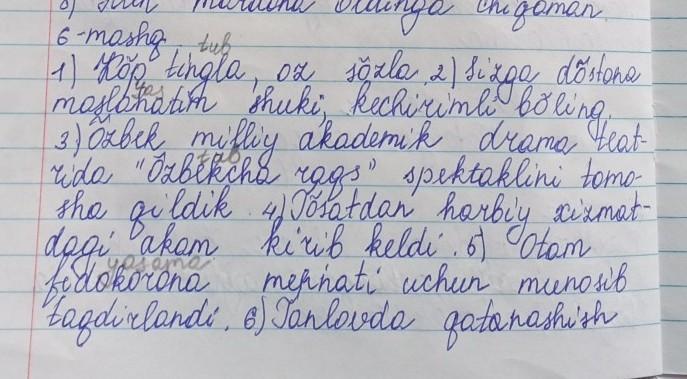 6-mashq.
tub
1) Kŏp tingla, oz sŏzla. 2) Sizga dŏstona
yas
maslahatim shuki, kechirimli bŏling.
3) Ŏzbek milliy akademik drama teat-
tub
rida "Ŏzbekcha raqs" spektaklini tomo-
sha qildik. 4) Tŏsatdan harbiy xizmat-
dagi akam kirib keldi. 5) Otam
yasama
fidokorona mehnati uchun munosib
taqdirlandi. 6) Tanlovda qatanashish